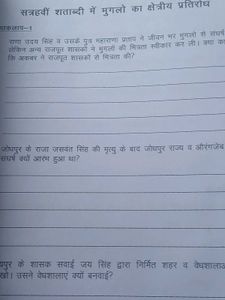 सत्रहवीं शताब्दी में मुगलो का क्षेत्रीय प्रतिरोध
कलाप–1
राणा उदय सिंह व उसके पुत्र महाराणा प्रताप ने जीवन भर मुगलो से संघर्ष
लेकिन अन्य राजपूत शासकों ने मुगलों की मित्रता स्वीकार कर ली। क्या का
कि अकबर ने राजपूत शासकों से मित्रता की?
जोधपुर के राजा जसवंत सिंह की मृत्यु के बाद जोधपुर राज्य व औरंगजेब
संघर्ष क्यों आरम्भ हुआ था?
पुर के शासक सवाई जय सिंह द्वारा निर्मित शहर व वेधशाला
खो। उसने वेधशालाएं क्यों बनवाई?